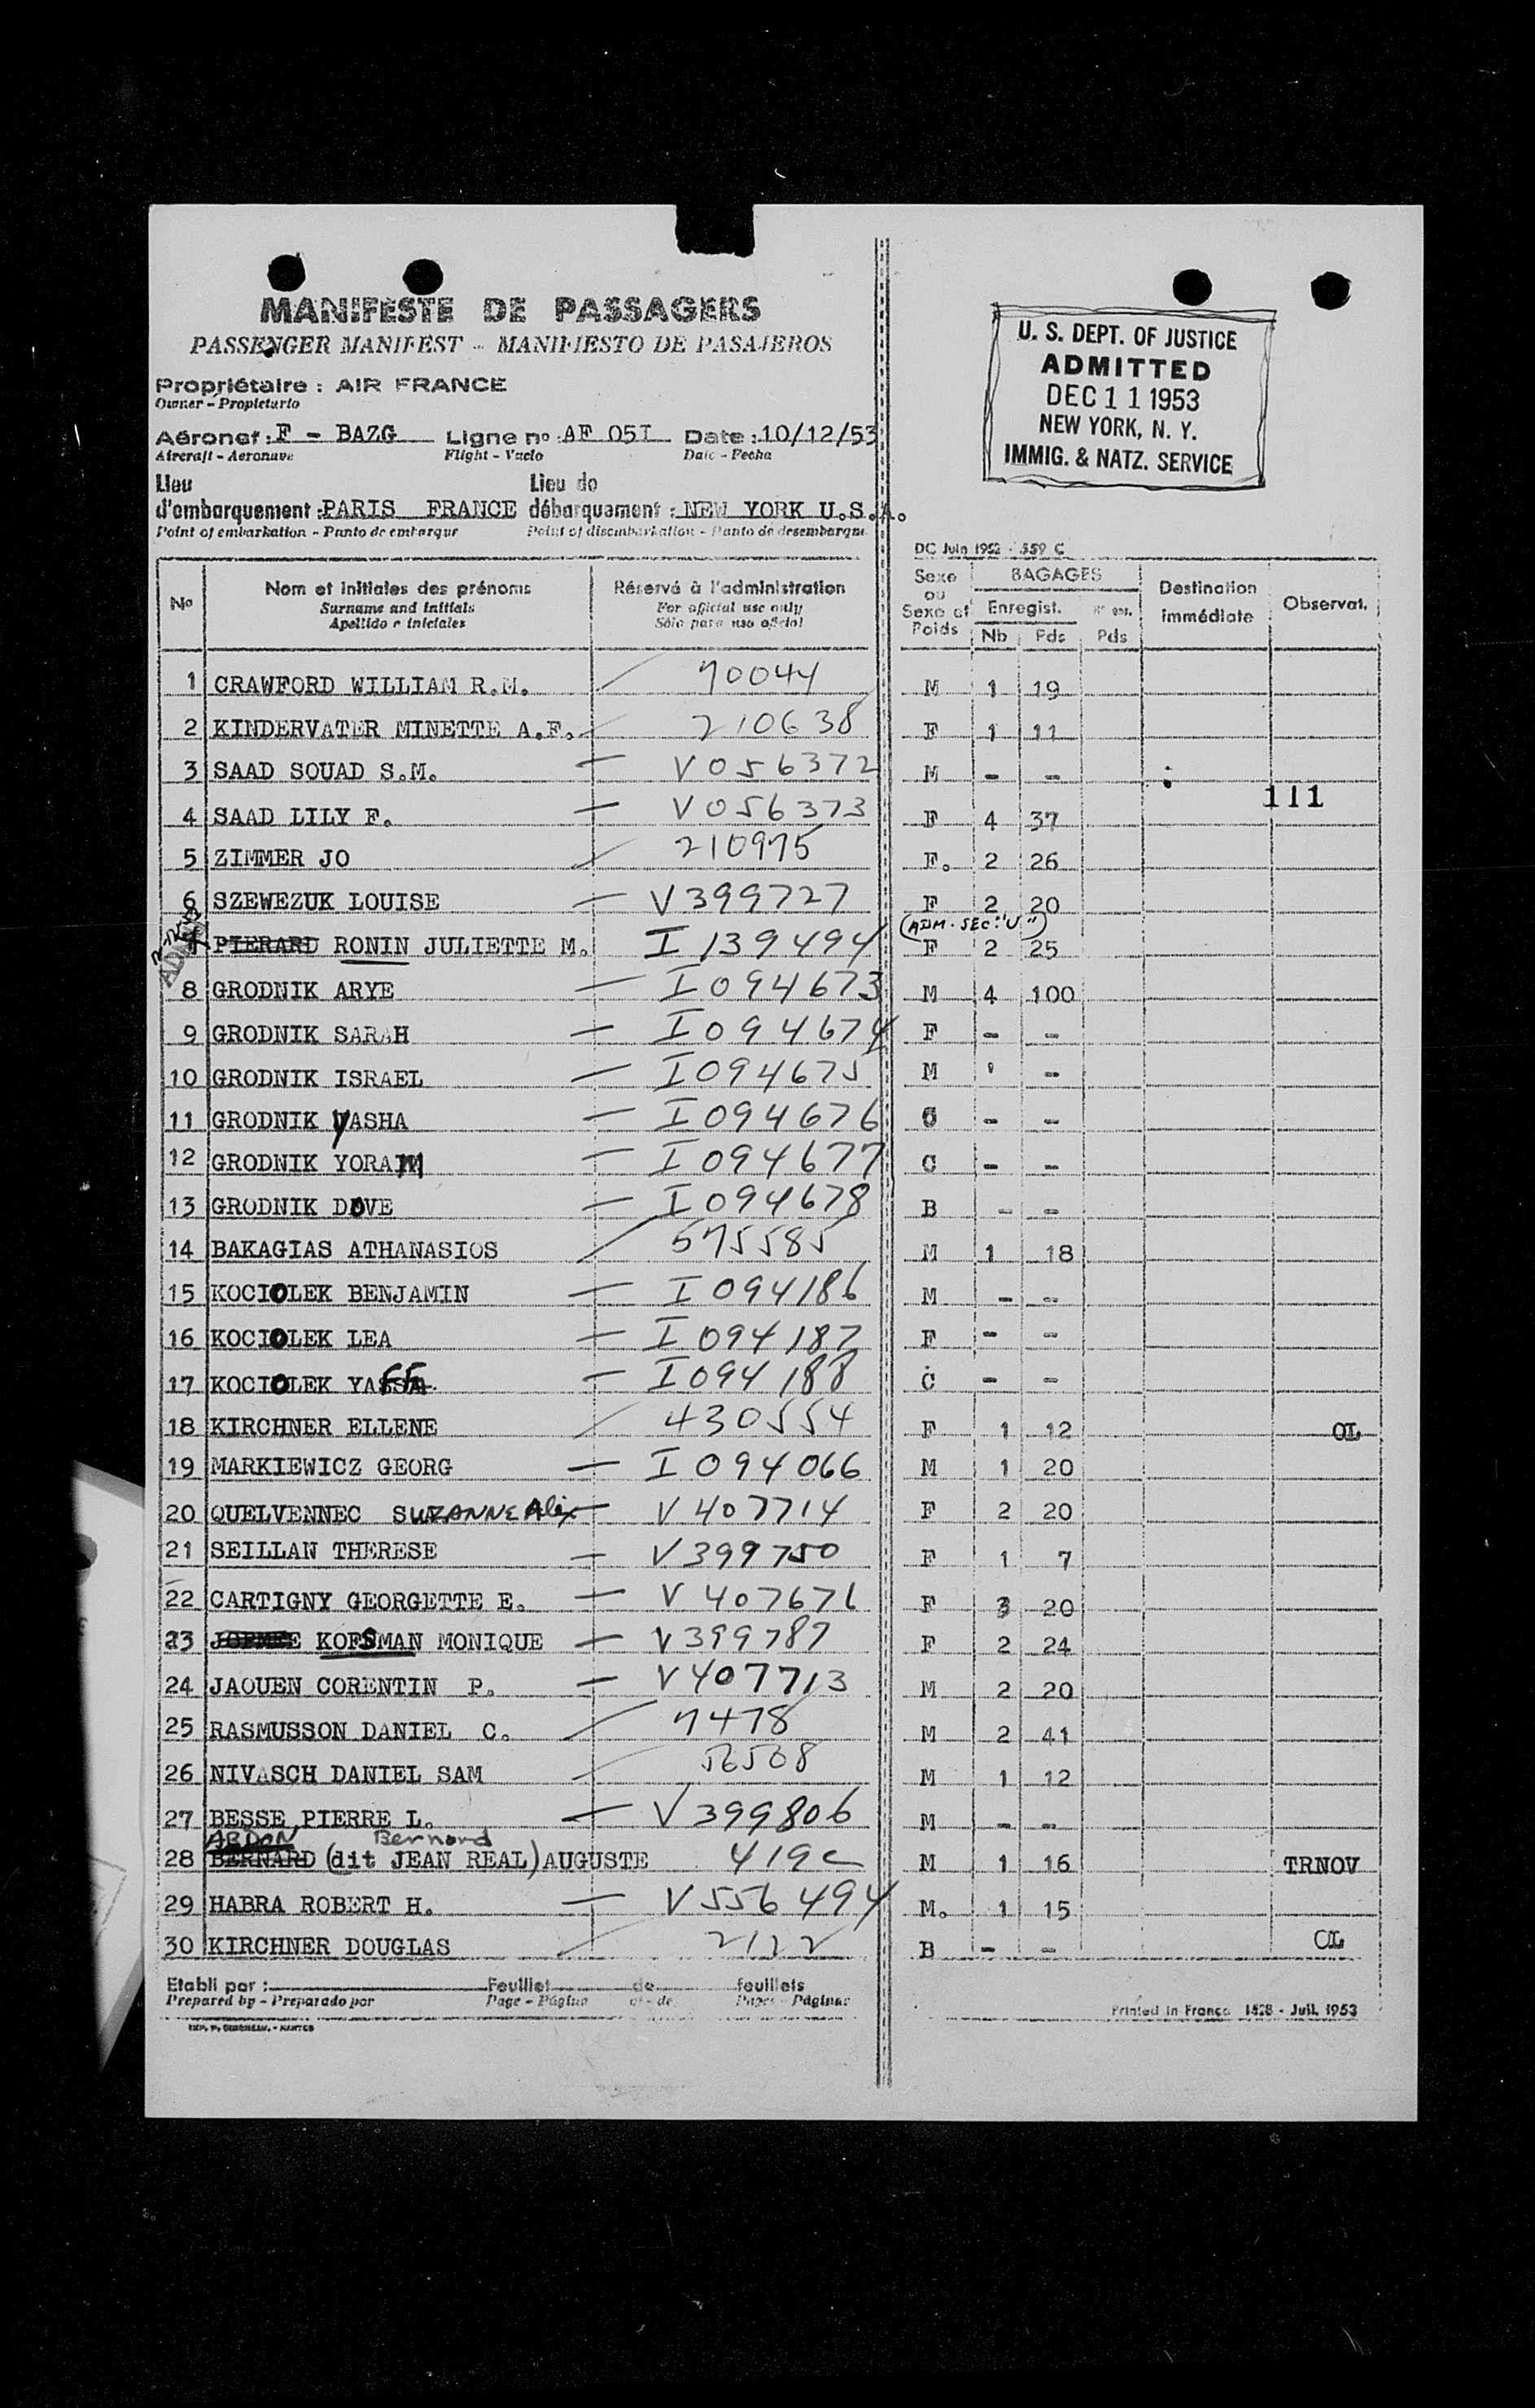 MANIFESTE DE PASSAGERS
PASSENGER MANIFEST - MANIFIESTO DE PASAJEROS
Propriétaire : AIR FRANCE
Owner - Propietario
Aéronef : F - BAZG Ligne no : AF 051 Date : 10/12/53
Aircraft - Aeronave Flight - Vuelo Date - Fecha
Lieu d'embarquement : PARIS FRANCE Lieu de débarquement : NEW YORK U.S.A.
Point of embarkation - Punto de embarque Point of disembarkation - Punto de desembarque
U. S. DEPT. OF JUSTICE
ADMITTED
DEC 11 1953
NEW YORK, N. Y.
IMMIG. & NATZ. SERVICE
DC Juin 1952 - 559 C
No Nom et initiales des prénoms Réservé à l'administration Sexe ou Sexe et Poids BAGAGES Destination immédiate Observat.
Surname and initials For official use only Enregist.
Apellido e iniciales Sólo para uso oficial Nb Pds Pds
1 CRAWFORD WILLIAM R.M. 70044 M 1 19
2 KINDERVATER MINETTE A.F. 210638 F 1 11
3 SAAD SOUAD S.M. V056372 M - -
111
4 SAAD LILY F. V056373 F 4 37
5 ZIMMER JO 210975 F. 2 26
6 SZEWEZUK LOUISE V399727 F 2 20
(ADM. SEC. "U")
7 PIERARD RONIN JULIETTE M. I 139494 F 2 25
8 GRODNIK ARYE I094673 M 4 100
9 GRODNIK SARAH I094674 F - -
10 GRODNIK ISRAEL I094675 M -
11 GRODNIK YASHA I094676 C - -
12 GRODNIK YORAM I094677 C - -
13 GRODNIK DOVE I094678 B - -
14 BAKAGIAS ATHANASIOS 575585 M 1 18
15 KOCIOLEK BENJAMIN I094186 M - -
16 KOCIOLEK LEA I094187 F - -
17 KOCIOLEK YAFFA I094188 C - -
18 KIRCHNER ELLENE 430554 F 1 12 OL
19 MARKIEWICZ GEORG I 094066 M 1 20
20 QUELVENNEC SUZANNE Alix V 407714 F 2 20
21 SEILLAN THERESE V399750 F 1 7
22 CARTIGNY GEORGETTE E. V 407676 F 3 20
23 KOFSMAN MONIQUE V399787 F 2 24
24 JAOUEN CORENTIN P. V407713 M 2 20
25 RASMUSSON DANIEL C. 7478 M 2 41
26 NIVASCH DANIEL SAM 56508 M 1 12
27 BESSE PIERRE L. V399806 M - -
ABDON Bernard
28 BERNARD (dit JEAN REAL) AUGUSTE 419c M 1 16 TRNOV
29 HABRA ROBERT H. V556494 M. 1 15
30 KIRCHNER DOUGLAS 2122 B - - OL
Etabli par : Feuillet de feuillets
Prepared by - Preparado por Page - Página of - de Pages - Páginas
Printed in France 1528 - Juil. 1953